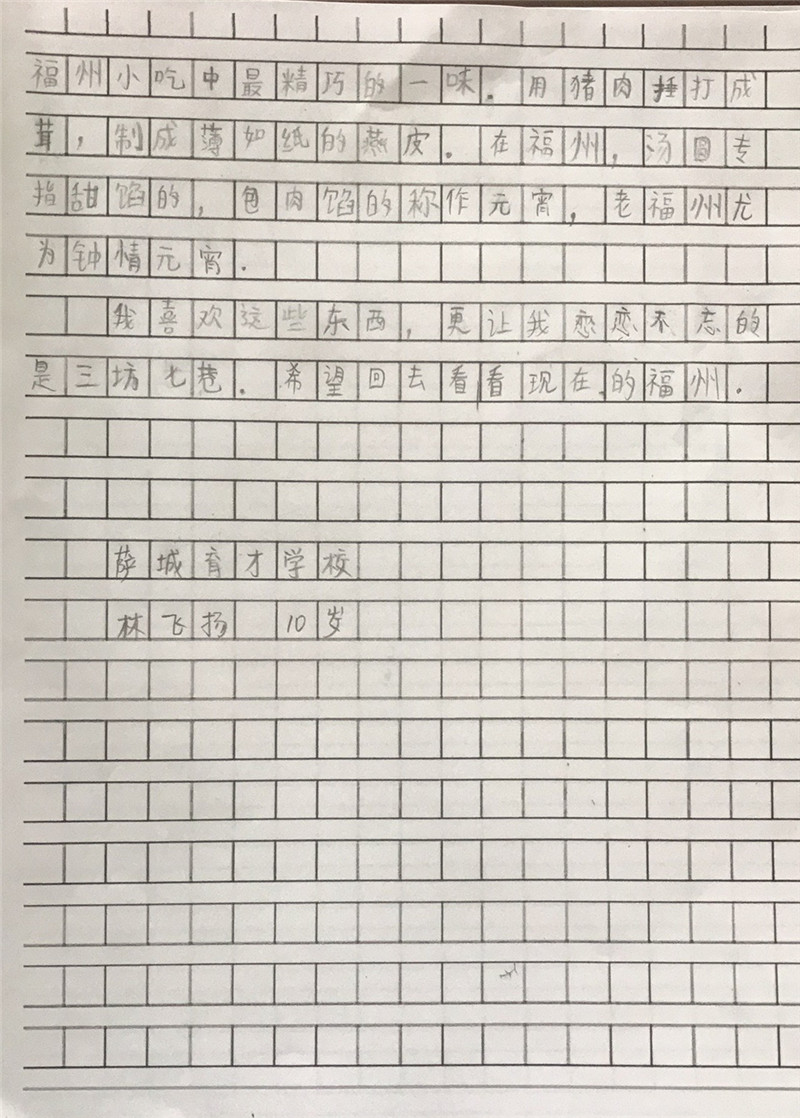 福州小吃中最精巧的一味.用猪肉捶打成
茸,制成薄如纸的燕皮.在福州,汤圆专
指甜馅的,包肉馅的称作元宵,老福州尤
为钟情元宵.
我喜欢这些东西,更让我恋恋不忘的
是三坊七巷.希望回去看看现在的福州.
萨城育才学校
林飞扬 10岁